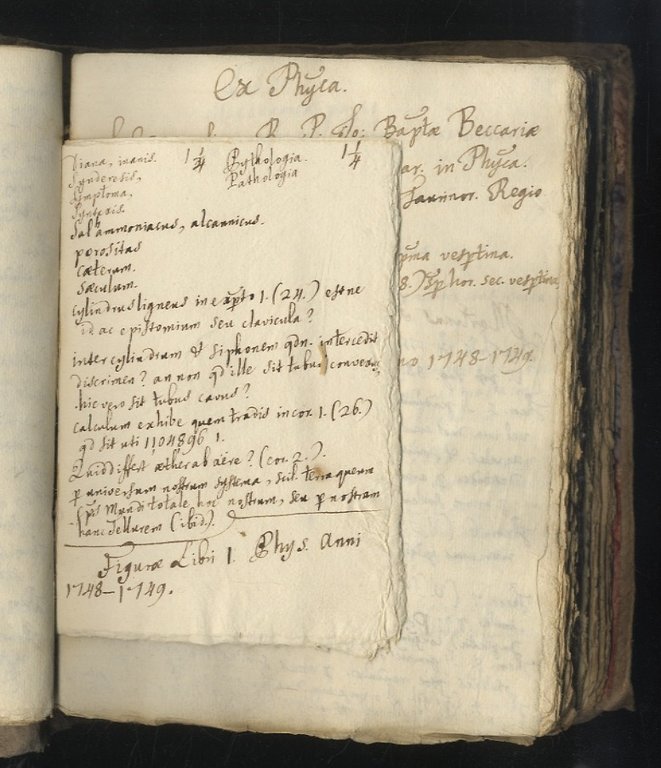 Ex Phyca.
R. P. Jo: Baptæ Beccariæ
ar. in Phyca.
Taurinor. Regio
pma vespertina.
8.) Sp hor. sec. vespertina
no 1748-1749.
Viana, inanis. 1 1/4 Pythologia. 1 1/4
Synderesis, Pathologia
Symptoma,
Syntaxis.
Sal ammoniacus, alcannicus.
porositas
cæterum.
sæculum.
cylindrus ligneus in expto 1. (24.) estne
id ac epistomium seu clavicula?
inter cylindrum & siphonem qdn. intercedit
discrimen? an non qd ille sit tubus
hic vero sit tubus cavus?
calculum exhibe quem tradis in cor. 1. (26.)
qd sit uti 1104896 1.
Quid differt æther ab aëre? (cor. 2.).
p universum nostrum systema, sist. terraqueum
(pis Mundi totale hoc nostrum, seu p nostram
hanc Tellurem (ibid.).
Figuræ Libri 1. Phys. Anni
1748-1749.